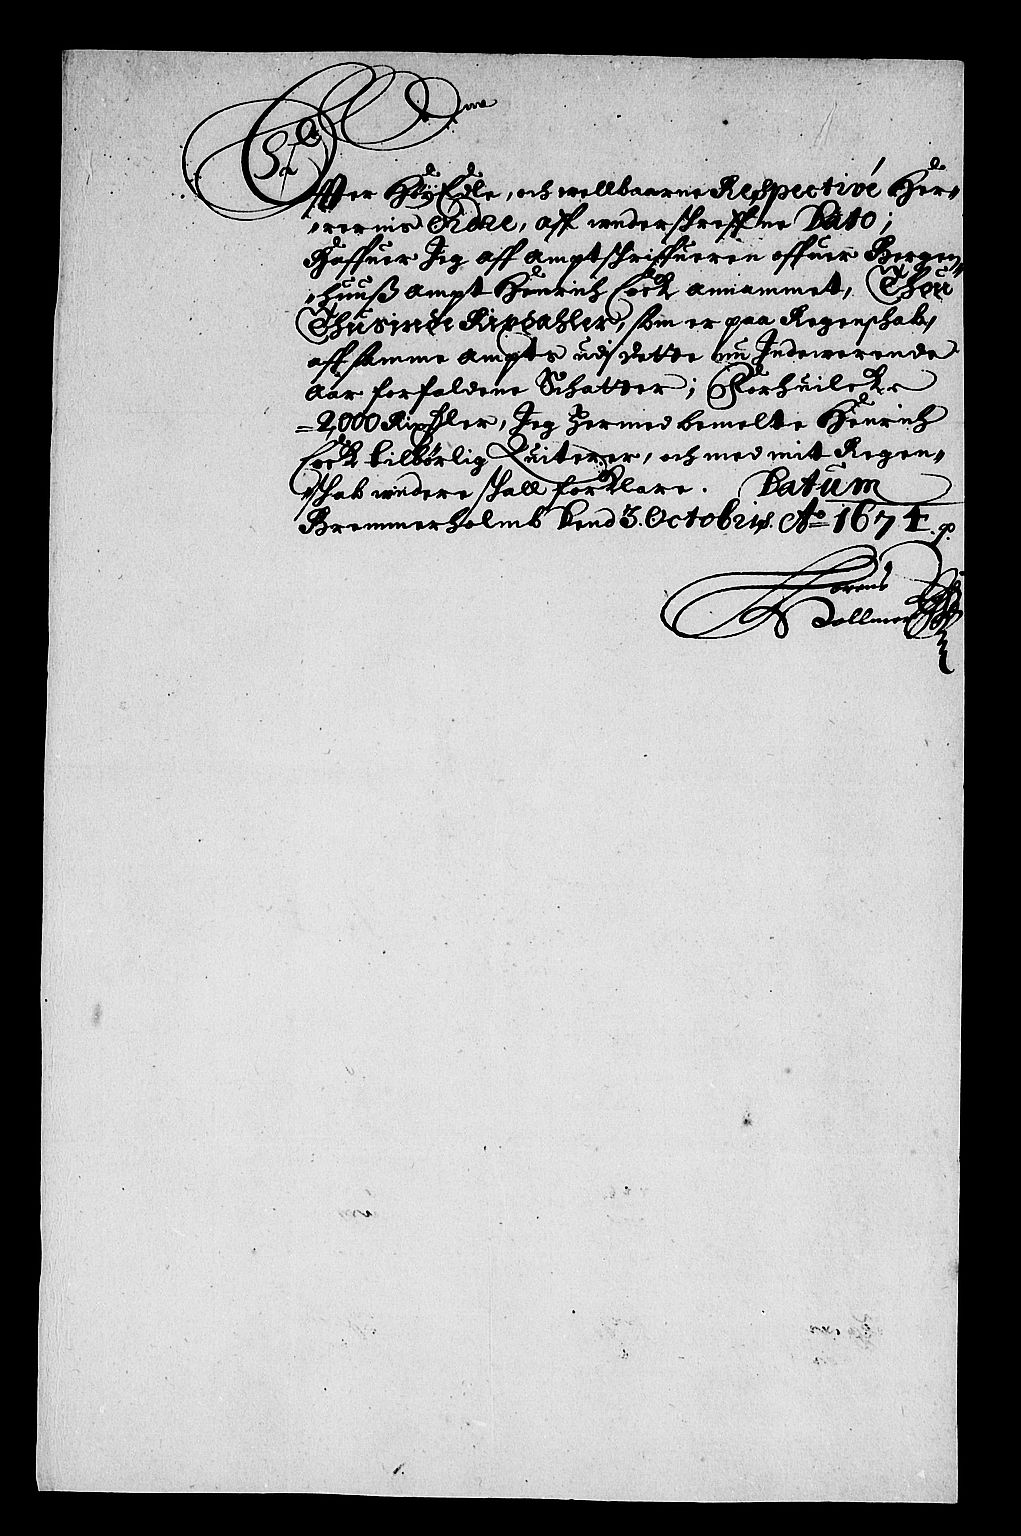 Effter Høy Edle, och wellbaarne Respectivé Her-
rernis Ordre, aff underschreffne Dato;
Haffuer Jeg aff Amptschriffueren offuer Bergen-
huuß ampt Henrich Cock annammet, Thou
Thusinde Rixdahler, som er paa Regenschab,
aff samme ampts udj dette nu Indewerende
Aar forfaldene Schatter; For huilcke
=2000 Rixdler, Jeg hermed bemelte Henrich
Cock tilbørlig Quiterer, och med mit Regen-
schab widere schall forklare. Datum
Bremmerholmb dend 3. Octobris. Ao 1674.